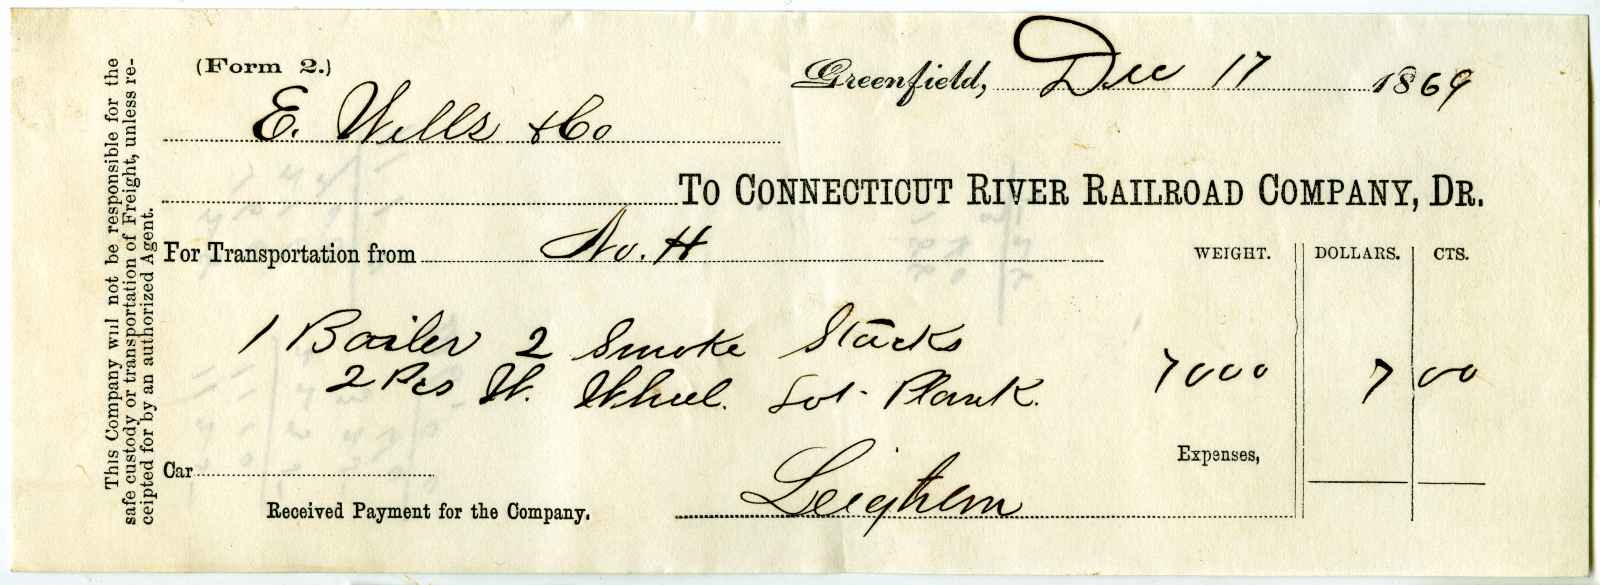 (Form 2.)
Greenfield, Dec 17 1869
E. Wells & Co
TO CONNECTICUT RIVER RAILROAD COMPANY, DR.
For Transportation from No. H
WEIGHT. DOLLARS. CTS.
1 Boiler 2 Smoke Stacks
2 Pcs W. Wheel. Lot Plank. 7000 7 00
Expenses,
Car
Received Payment for the Company.
This Company will not be responsible for the
safe custody or transportation of Freight, unless re-
ceipted for by an authorized Agent.